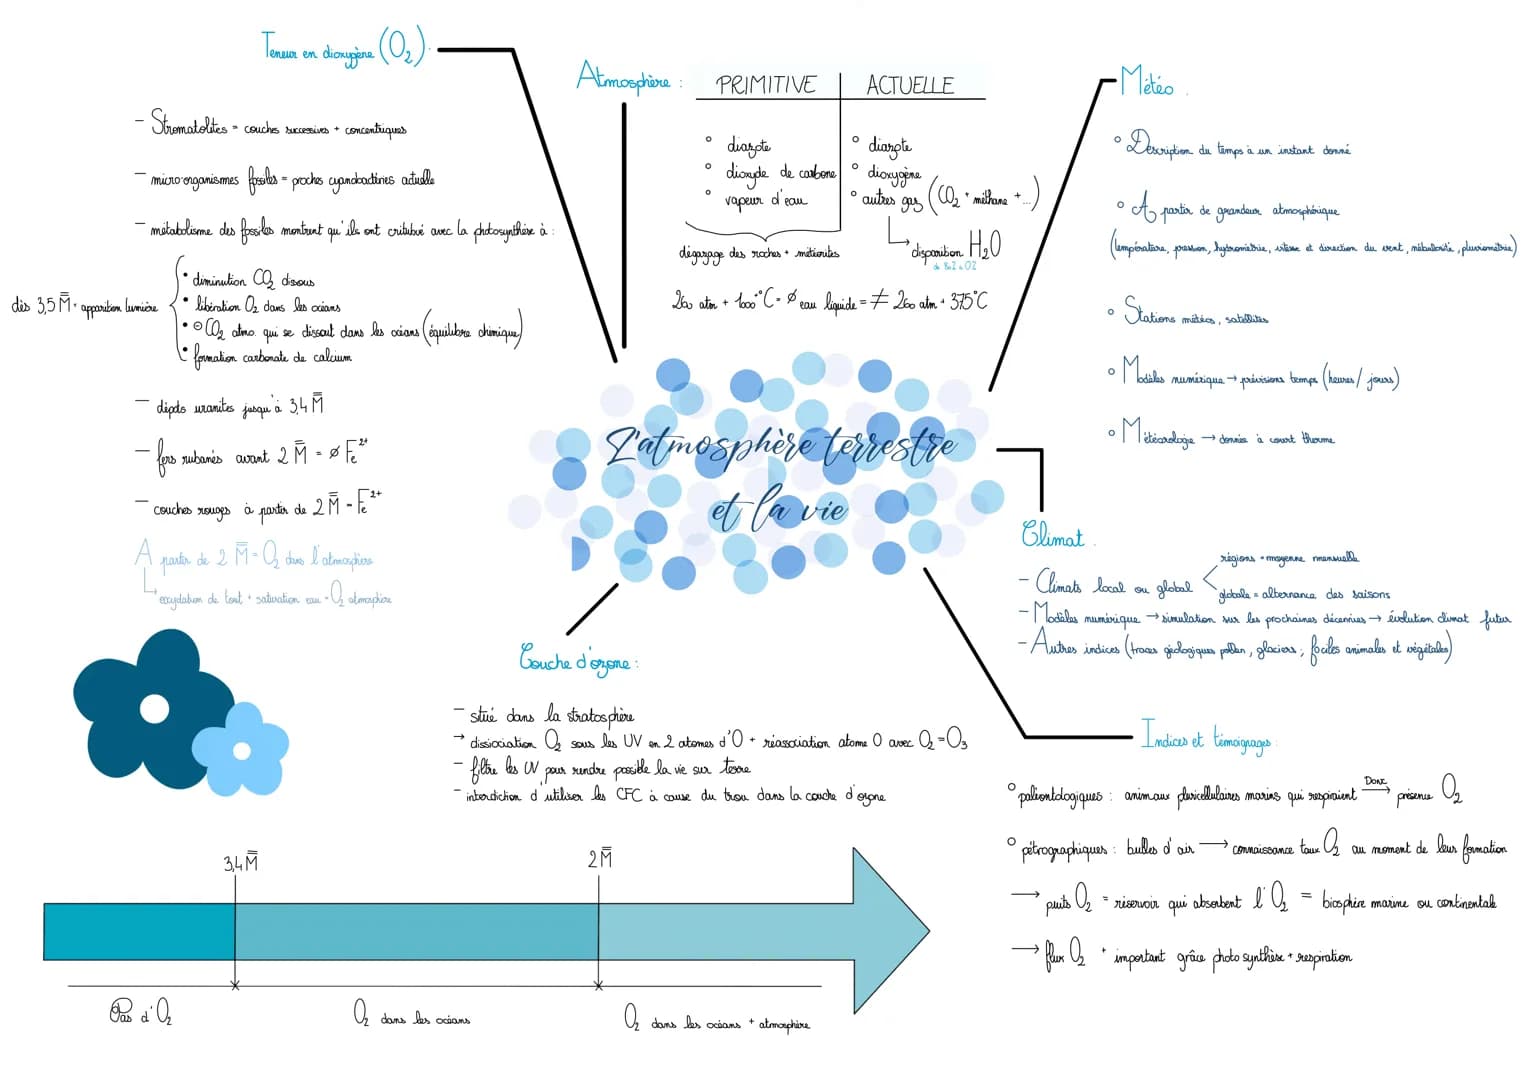 Teneur en dioxygène (O₂).
- Stromatolites = couches successives + concentriques
- micro-organismes fossiles = proches cyanobactéries actuelle
- métabolisme des fossiles montrent qu'ils ont critubué avec la photosynthèse à :
dès 3,5 M̅ = apparition lumière
• diminution CO₂ dissous
• libération O₂ dans les océans
• ⊖ CO₂ atmo. qui se dissout dans les océans (équilibre chimique)
• formation carbonate de calcium
- dépôts uranites jusqu'à 3,4 M̅
- fers rubanés avant 2 M̅ = ∅ Fe²⁺
- couches rouges à partir de 2 M̅ = Fe²⁺
A partir de 2 M̅ = O₂ dans l'atmosphère
↳ oxydation de tout + saturation eau = O₂ atmosphère
Atmosphère :
PRIMITIVE | ACTUELLE
° diazote
° dioxyde de carbone
° vapeur d'eau
dégazage des roches + météorites
° diazote
° dioxygène
° autres gaz (CO₂ + méthane + ...)
↳ disparition H₂O
260 atm + 1000°C = ∅ eau liquide = ≠ 260 atm + 375°C
Météo.
° Description du temps à un instant donné
° A partir de grandeur atmosphérique
(température, pression, hygrométrie, vitesse et direction du vent, nébulosité, pluviométrie)
° Stations météos, satellites
° Modèles numérique → prévisions temps (heures / jours)
° Météorologie → donnée à court therme
L'atmosphère terrestre
et la vie
Climat.
- Climats local ou global
régions = moyenne mensuelle
globale = alternance des saisons
- Modèles numérique → simulation sur les prochaines décennies → évolution climat futur
- Autres indices (traces géologiques pollen, glaciers ; fociles animales et végétales)
Couche d'ozone :
- situé dans la stratosphère
→ dissociation O₂ sous les UV en 2 atomes d'O + réassociation atome O avec O₂ = O₃
- filtre les UV pour rendre possible la vie sur terre
- interdiction d'utiliser les CFC à cause du trou dans la couche d'ozone
Indices et témoignages :
° paléontologiques : animaux pluricellulaires marins qui respiraient Donc → présence O₂
° pétrographiques : bulles d'air → connaissance taux O₂ au moment de leur formation
→ puits O₂ = réservoir qui absorbent l'O₂ = biosphère marine ou continentale
→ flux O₂ + important grâce photosynthèse + respiration
3,4 M̅
2 M̅
Pas d'O₂
O₂ dans les océans
O₂ dans les océans + atmosphère